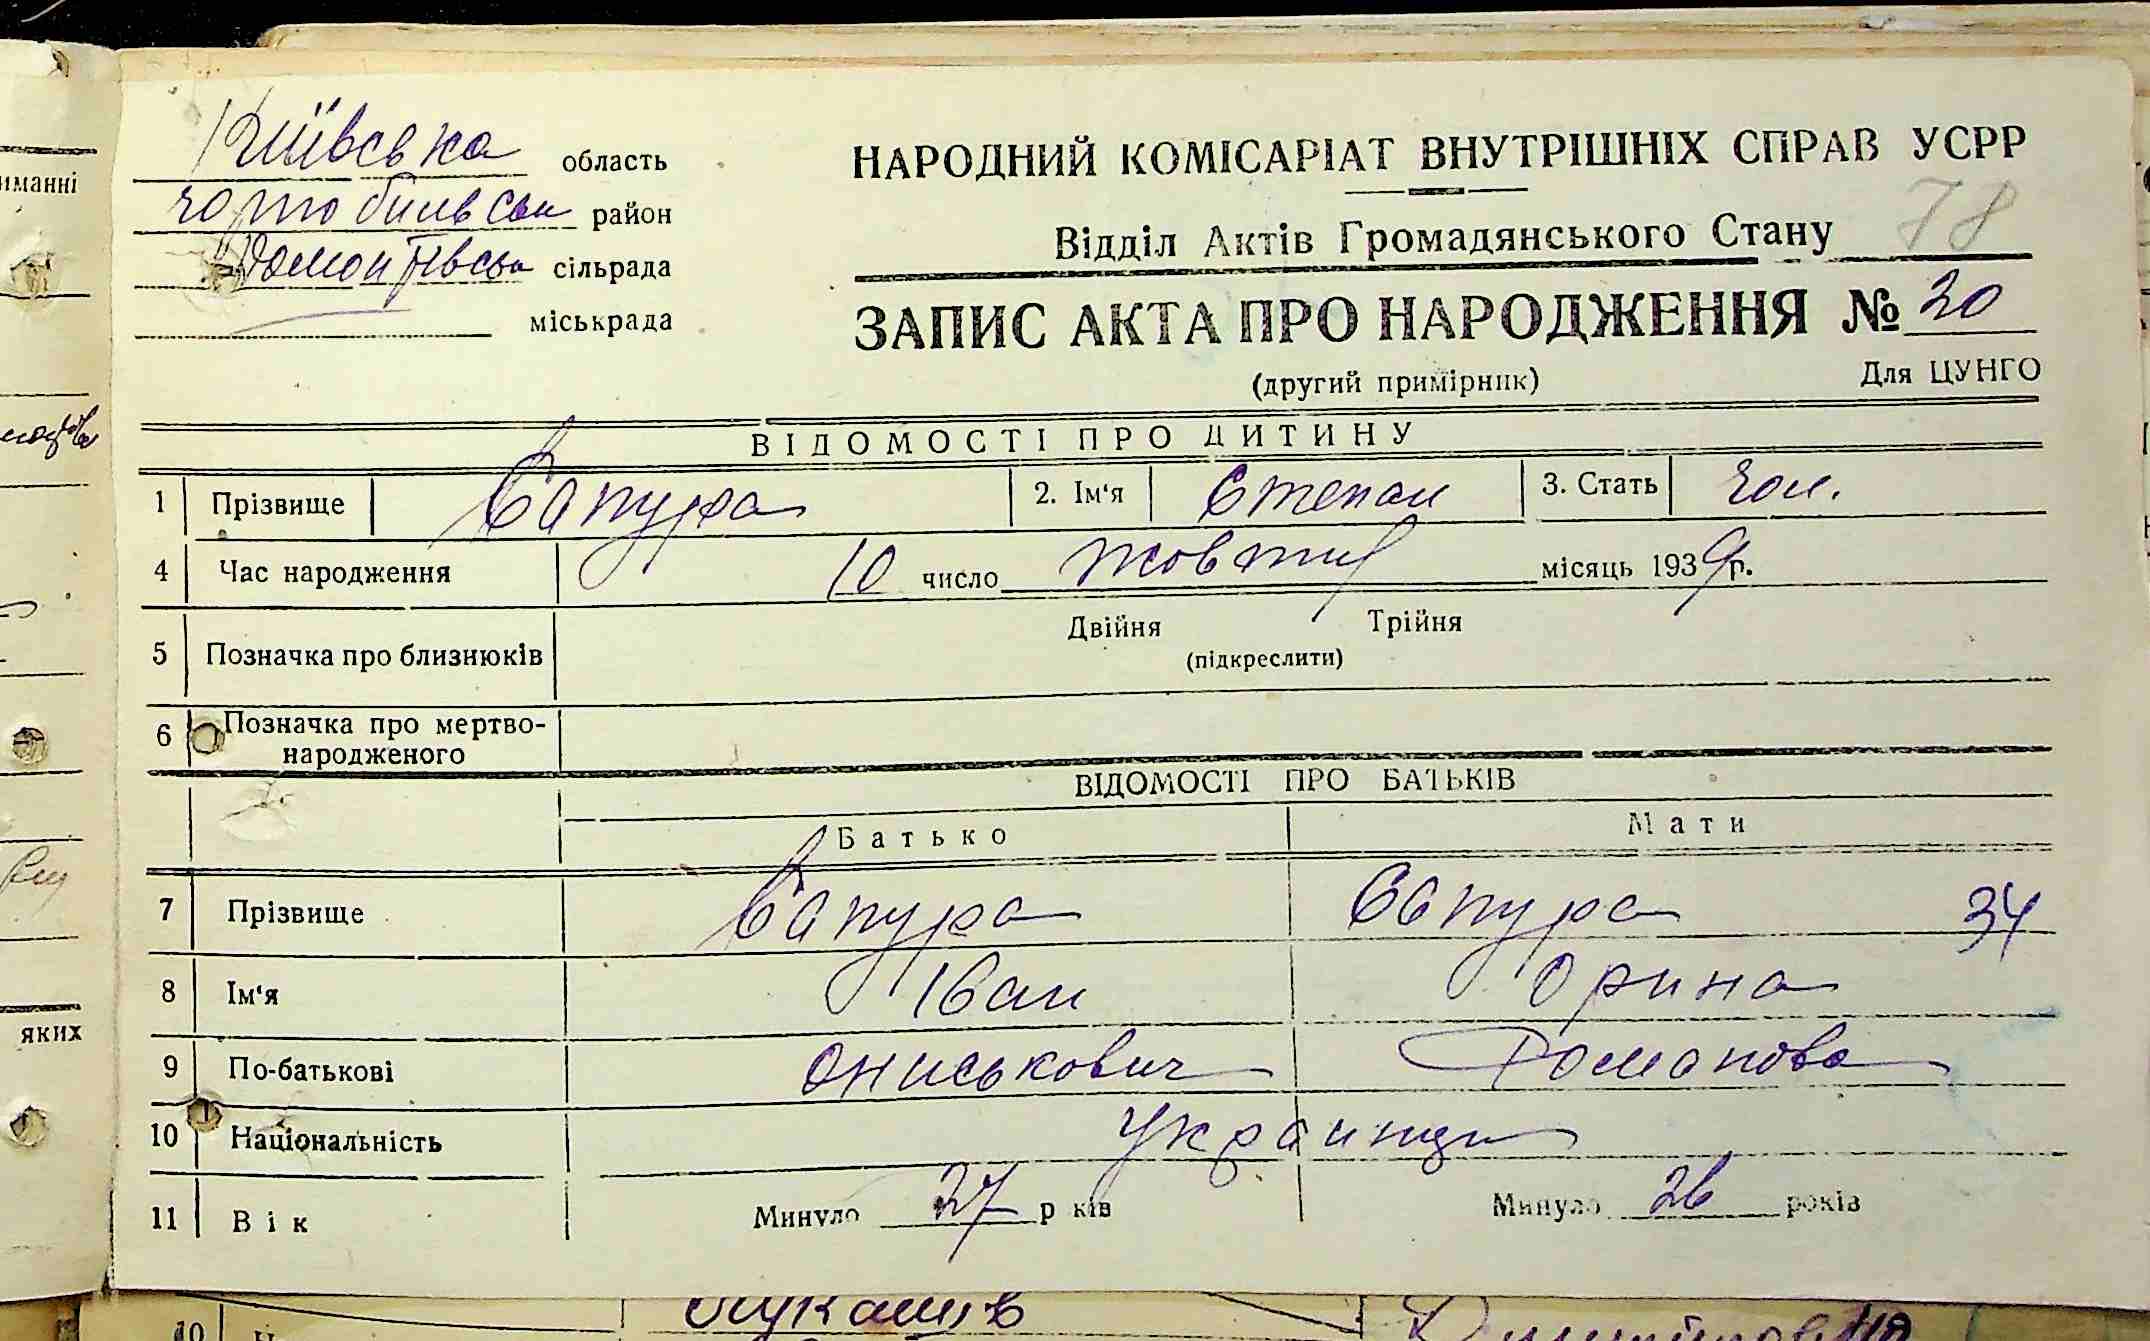 Київська область
Чорнобильськ район
сільрада
міськрада
НАРОДНИЙ КОМІСАРІАТ ВНУТРІШНІХ СПРАВ УСРР
Відділ Актів Громадянського Стану 78
ЗАПИС АКТА ПРО НАРОДЖЕННЯ № 20
(другий примірник) Для ЦУНГО
ВІДОМОСТІ ПРО ДИТИНУ
1 Прізвище Сапура 2. Ім'я Степан 3. Стать Чол.
4 Час народження 10 число жовтня місяць 1939 р.
5 Позначка про близнюків Двійня Трійня
(підкреслити)
6 Позначка про мертво-
народженого
ВІДОМОСТІ ПРО БАТЬКІВ
Батько Мати
7 Прізвище Сапура Сапура 34
8 Ім'я Іван Орина
9 По-батькові Ониськович Романова
10 Національність Украинци
11 Вік Минуло 27 р ків Минуло 26 років
иманні
яких
10